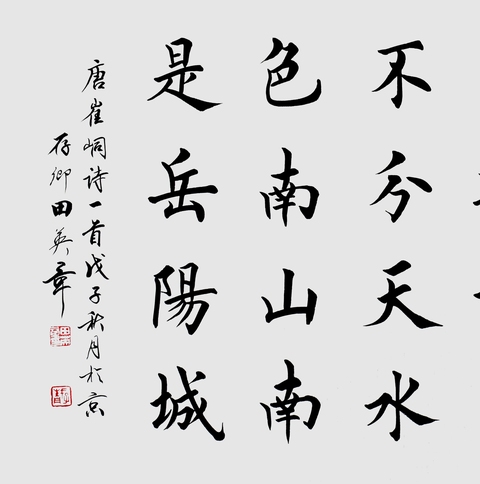 不分天水
色南山南
是岳陽城
唐崔峒诗一首戊子秋月於京
存卿田英章